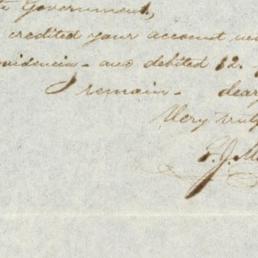 Government,
credited your account
and debited 12.
I remain - dear
Very truly